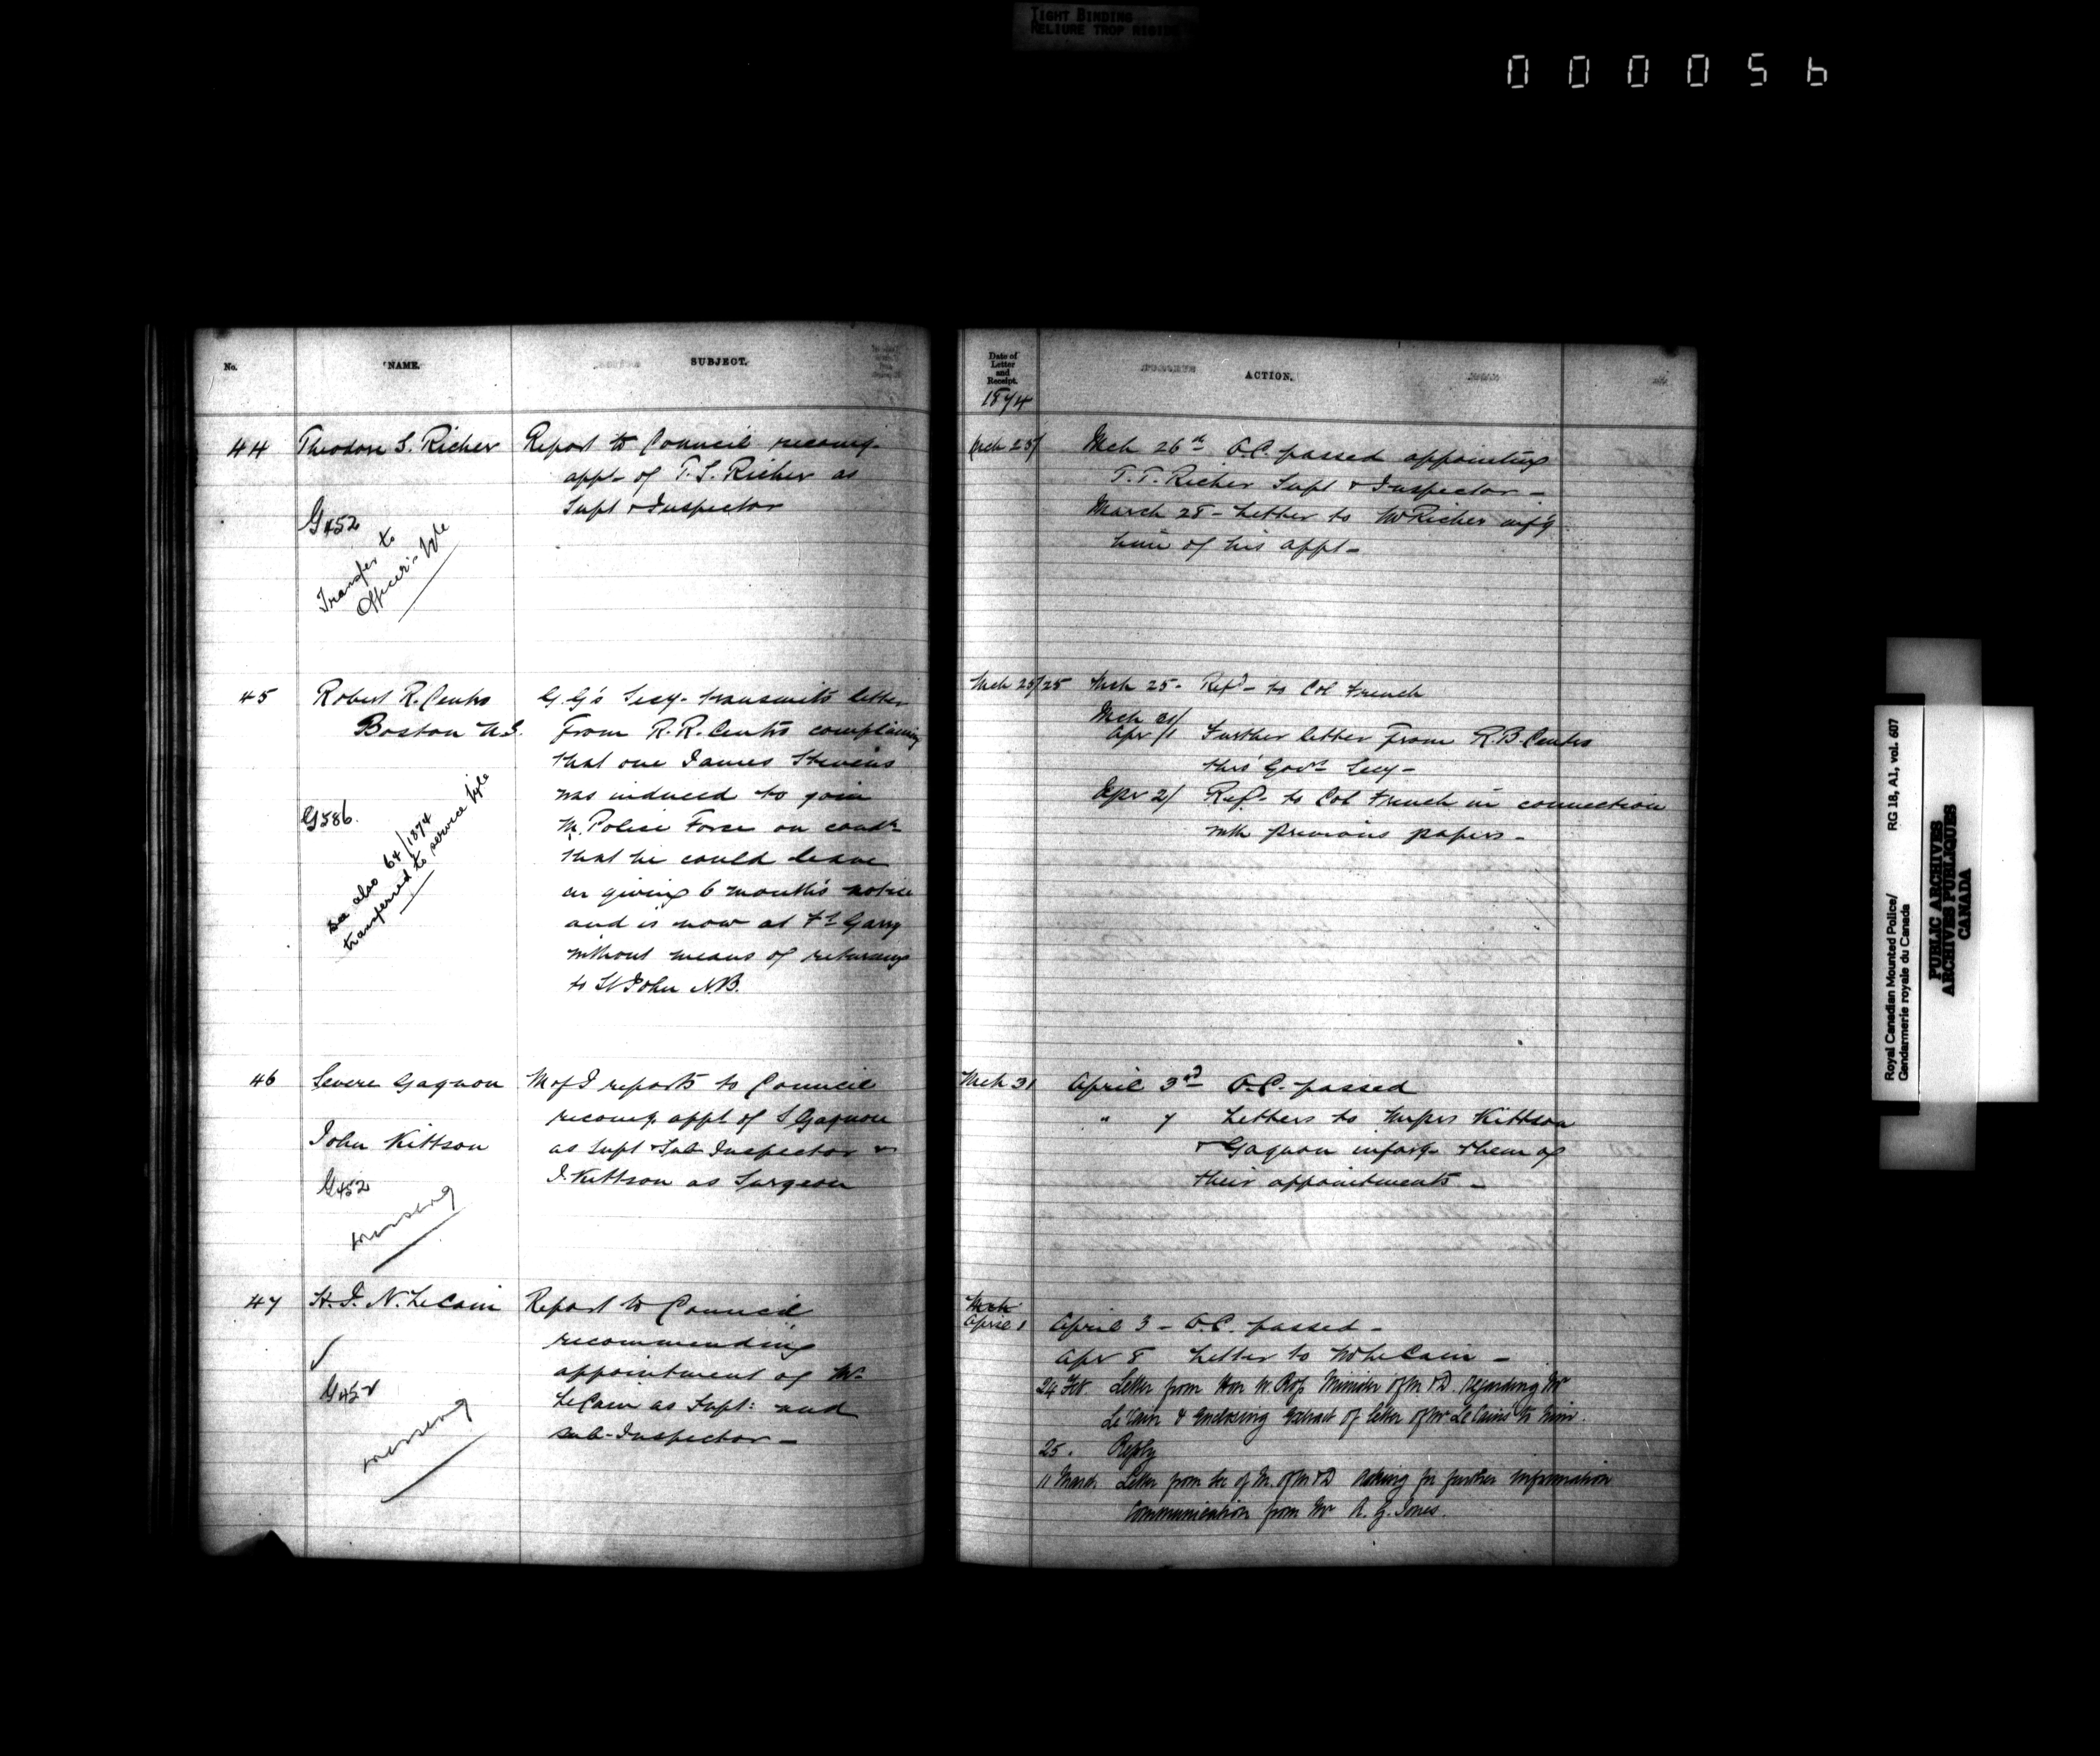 TIGHT BINDING
RELIURE TROP RIGIDE
0000056
No.
NAME.
SUBJECT.
44
Theodore S. Richer
Report to Council recomg.
appt- of T. S. Richer as
Supt & Inspector
G452
Transfer to
Officer's file
45
Robert R. Centro
Boston U.S.
G.G's Secy. transmits letter
From R.R. Centro complaining
that one James Stevens
was induced to join
M. Police Force on condn
that he could leave
on giving 6 month's notice
and is now at Ft Garry
without means of returning
to St John N.B.
G586.
See also 64/1874
transferred to service file
46
Severe Gagnon
John Kittson
M of J reports to Council
recomg appt of S Gagnon
as Supt & Sub Inspector &
J. Kittson as Surgeon
G452
missing
47
H. J. N. LeCain
Report to Council
recommending
appointment of Mr
LeCain as Supt: and
sub-Inspector -
✓
G452
missing
Date of
Letter
and
Receipt.
1874
ACTION.
Mch 25/
Mch 26th O.C. passed appointing
T. T. Richer Supt & Inspector -
March 28 - Letter to Mr Richer inf'g
him of his appt -
Mch 25/25
Mch 25 - Refd - to Col French
Mch 31/
Apr /1 Further letter from R.B. Centro
thro' Govr Secy -
Apr 2/ Refd - to Col French in connection
with previous papers -
Mch 31
April 3rd O.C. passed
" 7 Letters to Messrs Kittson
& Gagnon informg them of
their appointments -
Mch
April 1
April 3 - O.C. passed -
Apr 8 Letter to Mr LeCain -
24 Feb Letter from Hon W. Ross Minister of M & D. regarding Mr
Le Cain & enclosing extract of letter of Mr Le Cain's to him.
25. Reply
11 March Letter from Sec of M. of M & D asking for further information
Communication from Mr A. G. Jones.
Royal Canadian Mounted Police/
Gendarmerie royale du Canada
RG 18, A1, vol. 607
PUBLIC ARCHIVES
ARCHIVES PUBLIQUES
CANADA